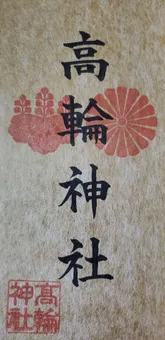 高輪神社
高輪
神社